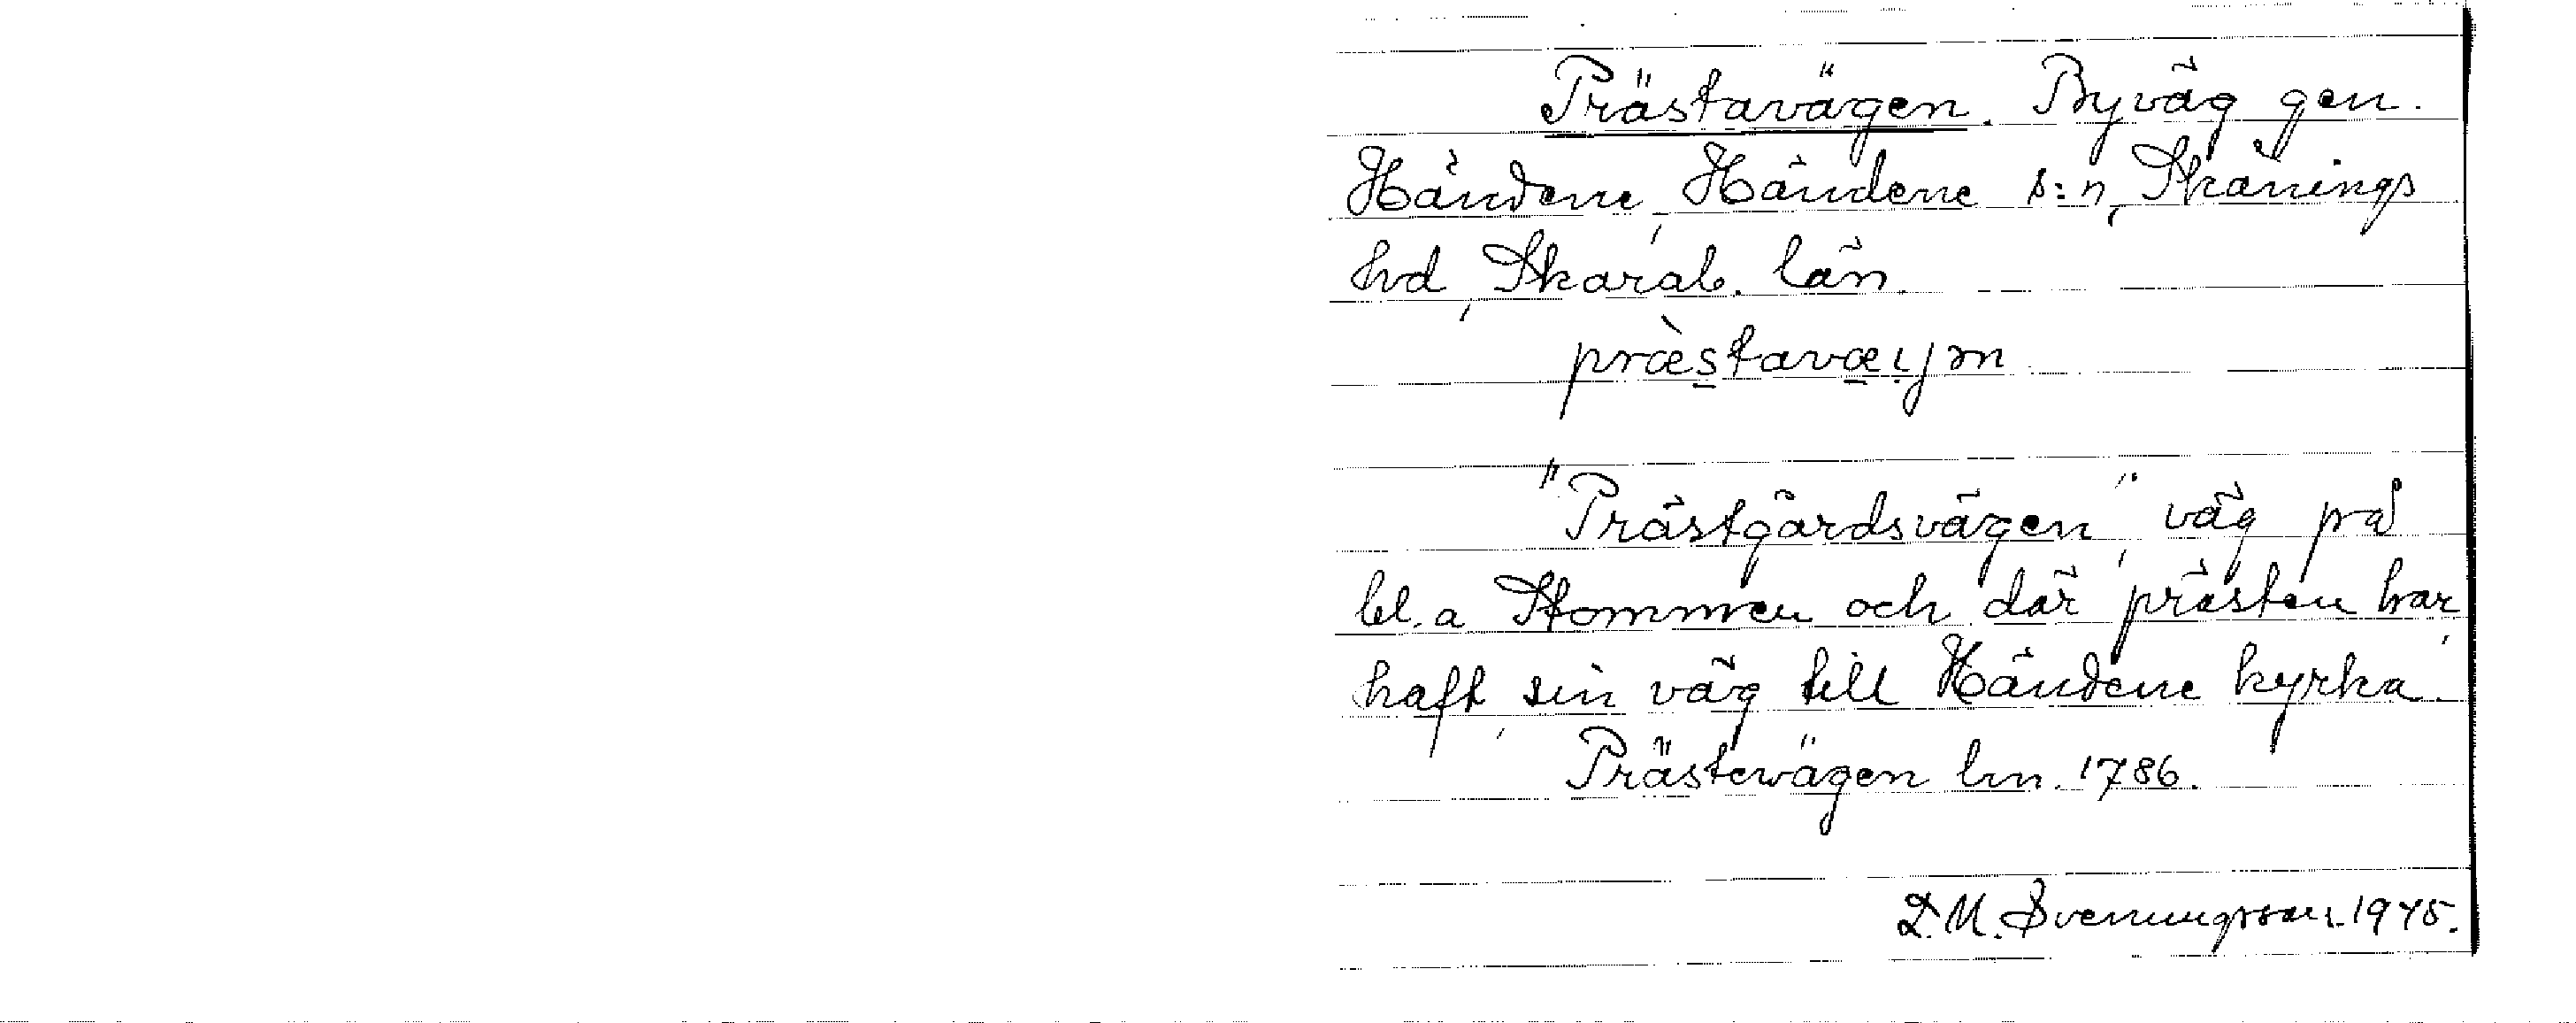 Prästavägen. Byväg gen.
Händene, Händene s:n, Skånings
hd, Skarab. län.
præ̀stavæɩjm
"Prästgårdsvägen", väg på
bl.a Stommen och där prästen har
haft sin väg till Händene kyrka.
Prästewägen lm. 1786.
D.M. Svenungsson. 1945.